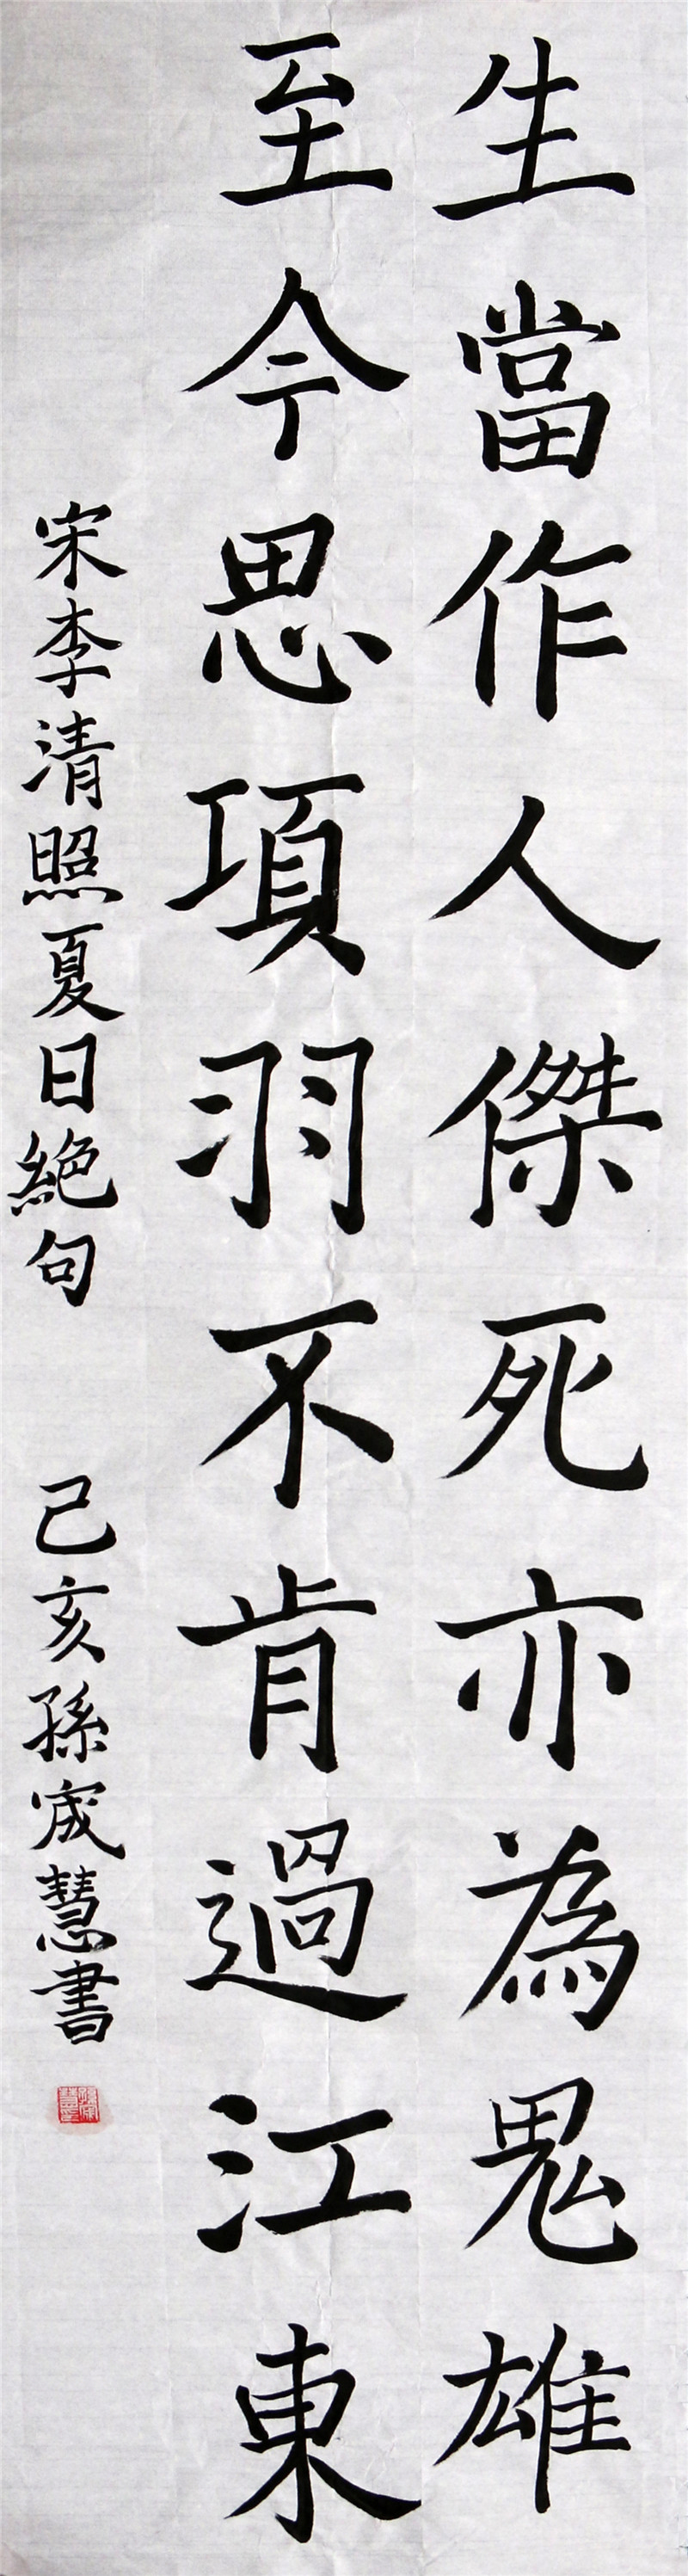 生當作人傑死亦為鬼雄
至今思項羽不肯過江東
宋李清照夏日絕句 己亥孫宬慧書